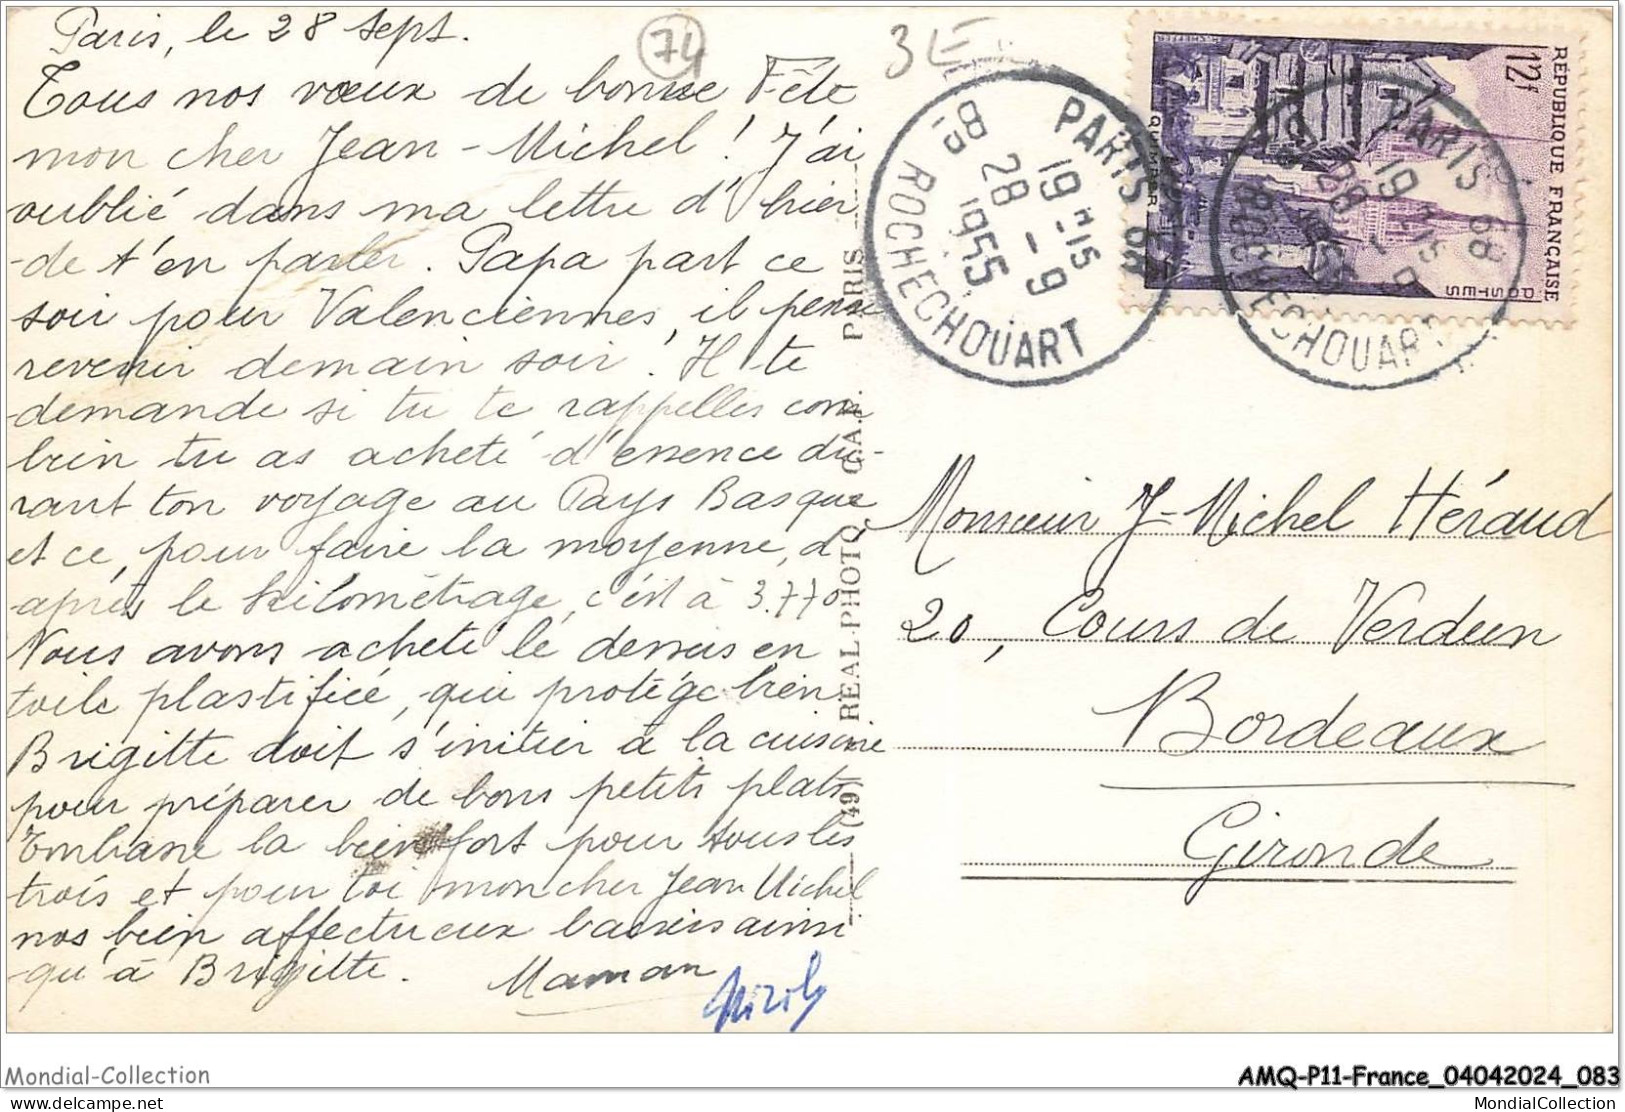 Paris, le 28 sept.
74
3 E
Tous nos vœux de bonne Fête
mon cher Jean-Michel ! J'ai
oublié dans ma lettre d'hier
de t'en parler. Papa part ce
soir pour Valenciennes, il pense
revenir demain soir ! Il te
demande si tu te rappelles com
bien tu as acheté d'essence du-
rant ton voyage au Pays Basque
et ce, pour faire la moyenne, d'
après le kilométrage, c'est à 3.770
Nous avons acheté le dessus en
toile plastifiée, qui protège bien
Brigitte doit s'initier à la cuisine
pour préparer de bons petits plats
Embrasse la bien fort pour tous les
trois et pour toi mon cher Jean Michel
nos bien affectueux baisers ainsi
qu'à Brigitte. Maman
(49) REAL-PHOTO C.A.P. PARIS
PARIS 68
19H15
28-9
1955
ROCHECHOUART
PARIS 68
19H15
28-9
ROCHECHOUART
RÉPUBLIQUE FRANÇAISE
POSTES
12F
QUIMPER
Monsieur J-Michel Héraud
20, Cours de Verdun
Bordeaux
Gironde
Mondial-Collection
AMQ-P11-France_04042024_083
www.mondialcollection.com
MondialCollection